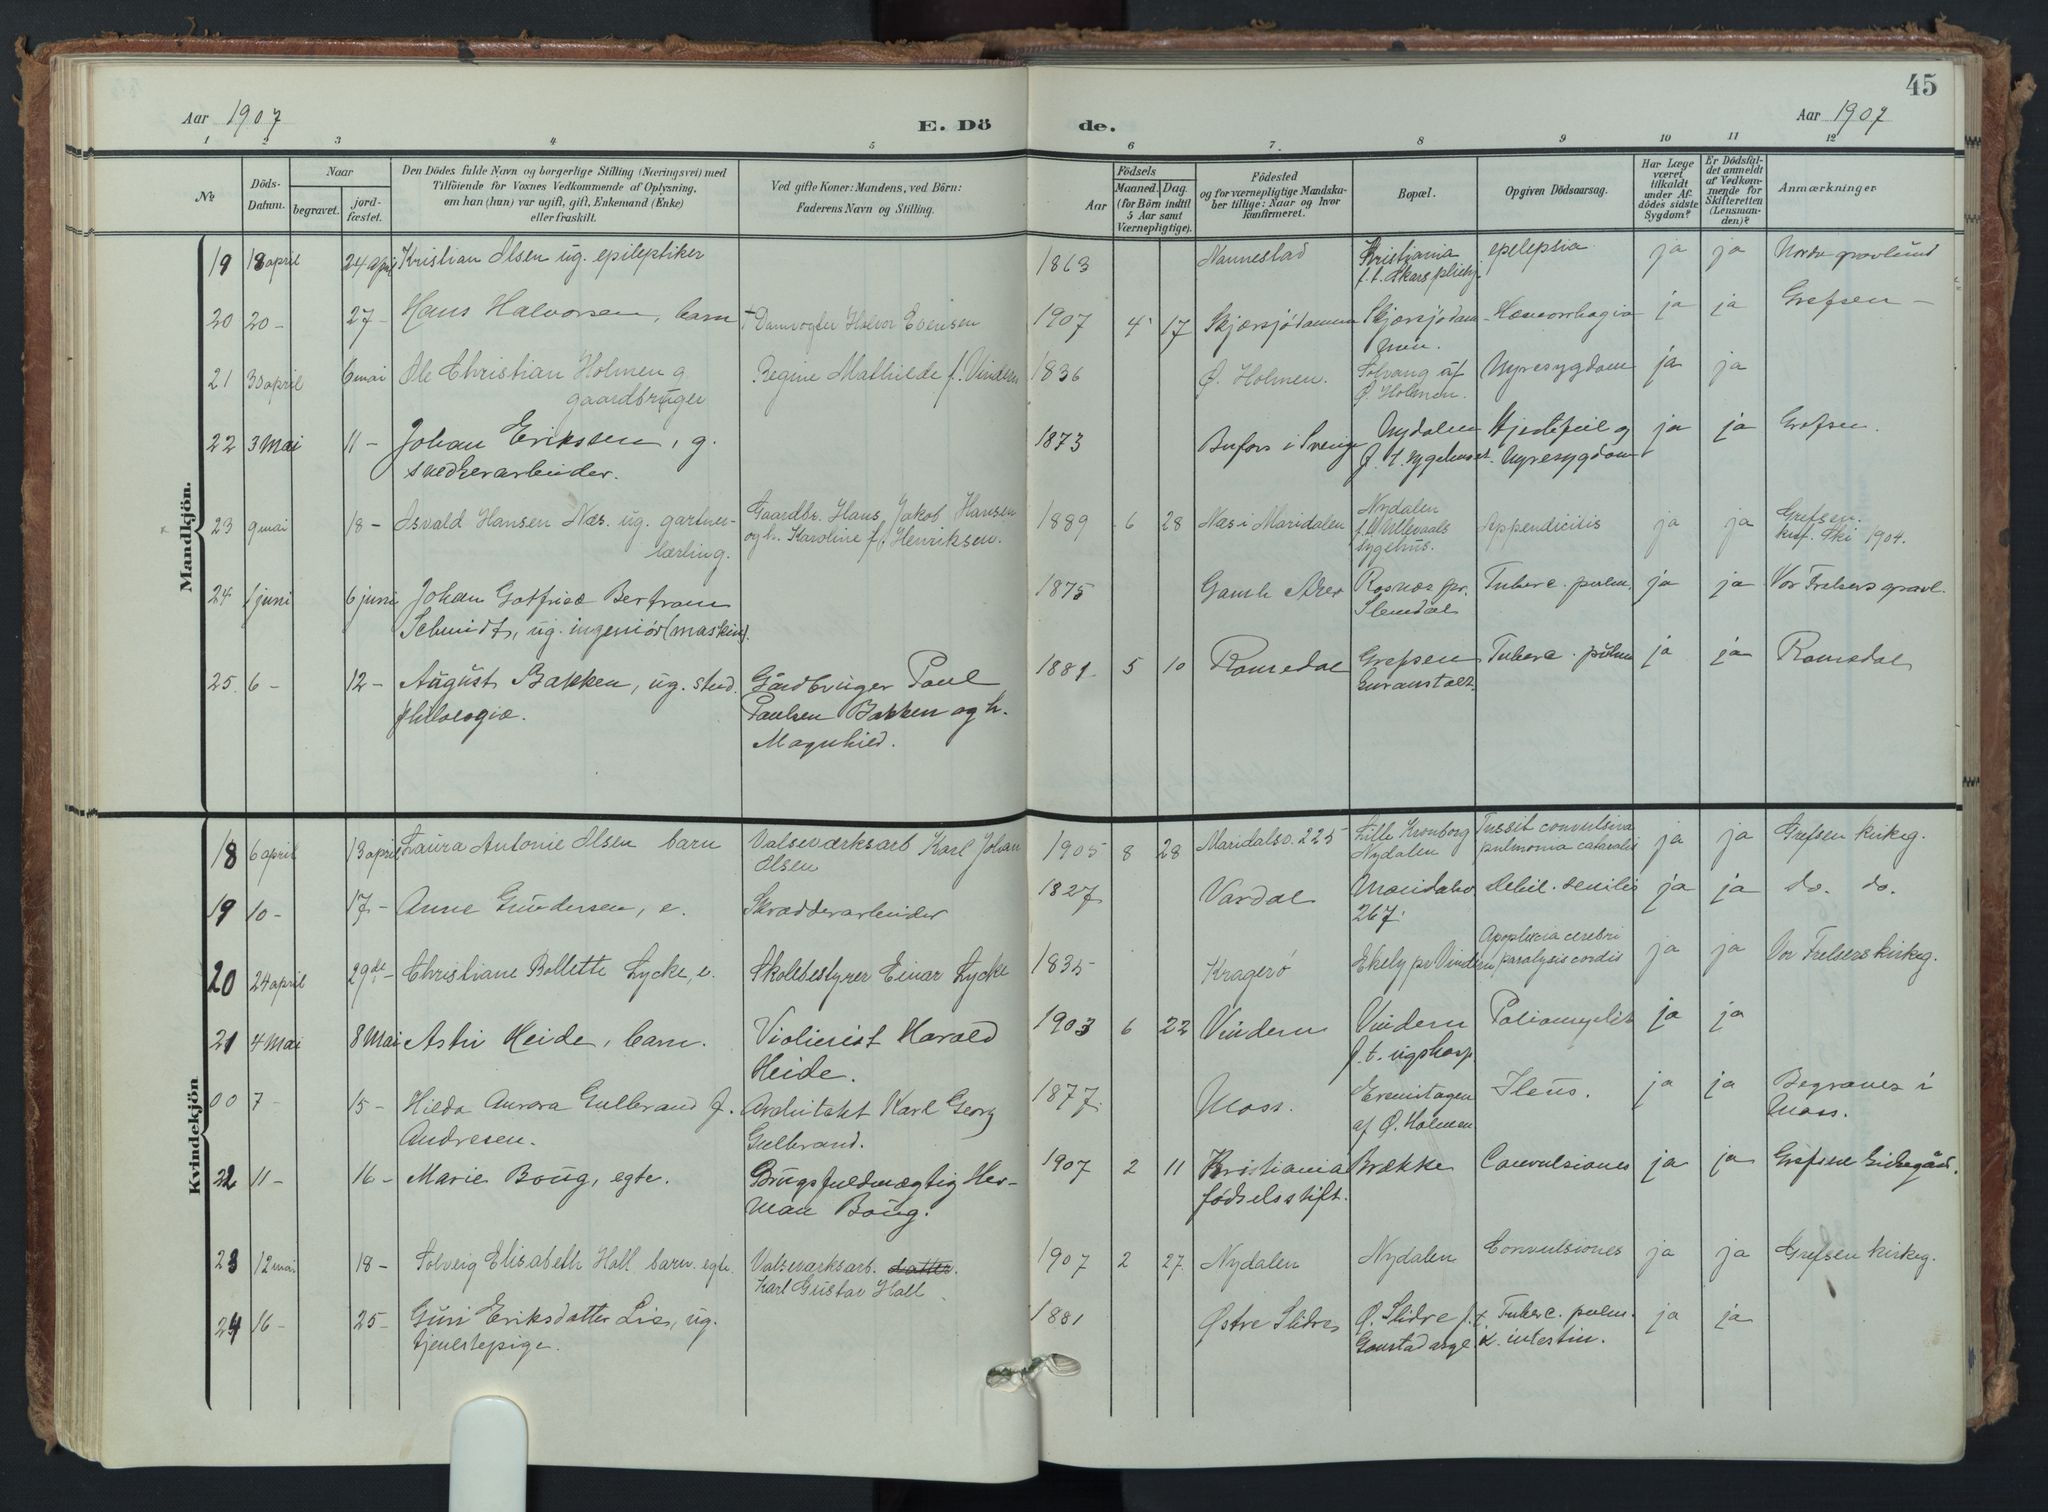 45
Aar 1907
E. Dö de.
Aar 1907
1 2 3 4 5 6 7. 8 9 10 11 12
No
Döds-Datum.
Naar
begravet.
jord-fæstet.
Den Dödes fulde Navn og borgerlige Stilling (Næringsvei) med
Tilföiende for Voxnes Vedkommende af Oplysning,
om han (hun) var ugift, gift, Enkemand (Enke)
eller fraskilt.
Ved gifte Koner: Mandens, ved Börn:
Faderens Navn og Stilling.
Födsels
Aar
Maaned. Dag.
(for Börn indtil
5 Aar samt
Værnepligtige).
Födested
og for værnepligtige Mandska-
ber tillige: Naar og hvor
Konfirmeret.
Bopæl.
Opgiven Dödsaarsag.
Har Læge
været
tilkaldt
under Af-
dödes sidste
Sygdom?
Er Dödsfal-
det anmeldt
af Vedkom-
mende for
Skifteretten
(Lensman-
den)?
Anmærkninger
Mandkjön.
19 18 april 24 april Kristian Olsen ug. epileptiker 1863 Nannestad Kristiania epelepsia ja ja Nordre gravlund
20 20 - 27 - Hans Halvorsen, barn + Damvogter Halvor Evensen 1907 4 17 Skjærsjödammen Skjærsjödam- Hæmorrhagia ja ja Grefsen -
men.
21 30 april 6 mai Ole Christian Holmen g Regine Mathilde f. Vindern 1836 Ø. Holmen. Solvang af Nyresygdom ja ja
gaardbruger Ø. Holmen.
22 3 Mai 11 - Johan Erikssen, g. 1873 Bufors i Sverige Nydalen Hjertefeil og ja ja Grefsen.
snedkerarbeider. f. t. sygehuset. Nyresygdom
23 9 mai 18 - Asvald Hansen Næs. ug. gartner- Gaardbr. Hans Jakob Hansen 1889 6 28 Næs i Maridalen Nydalen Appendicitis ja ja Grefsen.
lærling. og h. Karoline f. Henriksen. f.t. Ullevaals sygehus. konf. Ski 1904.
24 1 juni 6 juni Johan Gotfried Bertram 1875 Gamle Aker Rosnæs pr. Tuberc. pulm. ja ja Vor Frelsers gravl.
Schmidt, ug. ingeniör (maskin). Slemdal
25. 6 - 12 - August Bakken, ug. stud. Gårdbruger Paul 1881. 5 10 Romsdal Grefsen Tuberc. pulm ja ja Romsdal
philologiæ. Paulsen Bakken og h. Curanstalt.
Magnhild.
Kvindekjön
18 6 april 13 april Laura Antonie Olsen barn Valseværksarb Karl Johan 1905 8 28 Maridalsv. 225 Lille Kronborg Tussit convulsiva ja ja Grefsen kirkeg.
Olsen Nydalen pulmonia cataralis
19 10 - 17 - Anne Gundersen, e. Skrædderarbeider 1827 Vardal Maridalsv. Debil. senilis ja ja do. do.
267.
20 24 april 29de - Christiane Bollette Lycke, e. Skolebestyrer Einar Lycke 1835 Kragerö Ekely pr Vindern Apoplexia cerebri ja ja Vor Frelsers kirkeg.
paralysis cordis
21 4 Mai 8 Mai Astri Heide, barn. Violinist Harald 1903 6 22 Vindern Vindern Poliomyelit ja ja
Heide. f. t.
00 7 - 15 - Hilda Aurora Gulbrand f. Arkitekt Karl Georg 1877. Moss. Eremitagen Ileus. ja ja Begraves i
Andresen. Gulbrand. af Ø. Holmen Moss.
22 11 - 16 - Marie Boug, egte. Brugsfuldmægtig Her- 1907 2 11 Kristiania Brække Convulsiones ja ja Grefsen Kirkegård.
man Boug. födselsstift.
23 12 mai 18 - Solveig Elisabeth Hall barn. egte. Valseværksarb. datter. 1907 2 27. Nydalen Nydalen Convulsiones ja ja Grefsen kirkeg.
Karl Gustav Hall
24 16 - 25 - Guri Eriksdatter Lie, ug. 1881 Østre Slidre Ø. Slidre f. t. Tuberc. pulm. ja ja
tjenestepige. Gaustad asyl. & intestin.